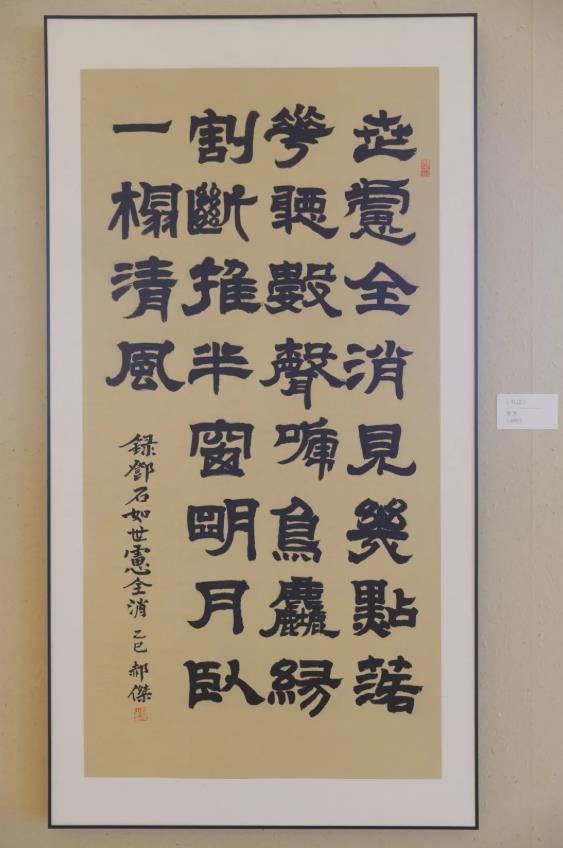 世慮全消見幾點落
華聽數聲啼鳥塵緣
割斷推半窗明月臥
一榻清風
錄鄧石如世慮全消 乙巳 郝傑